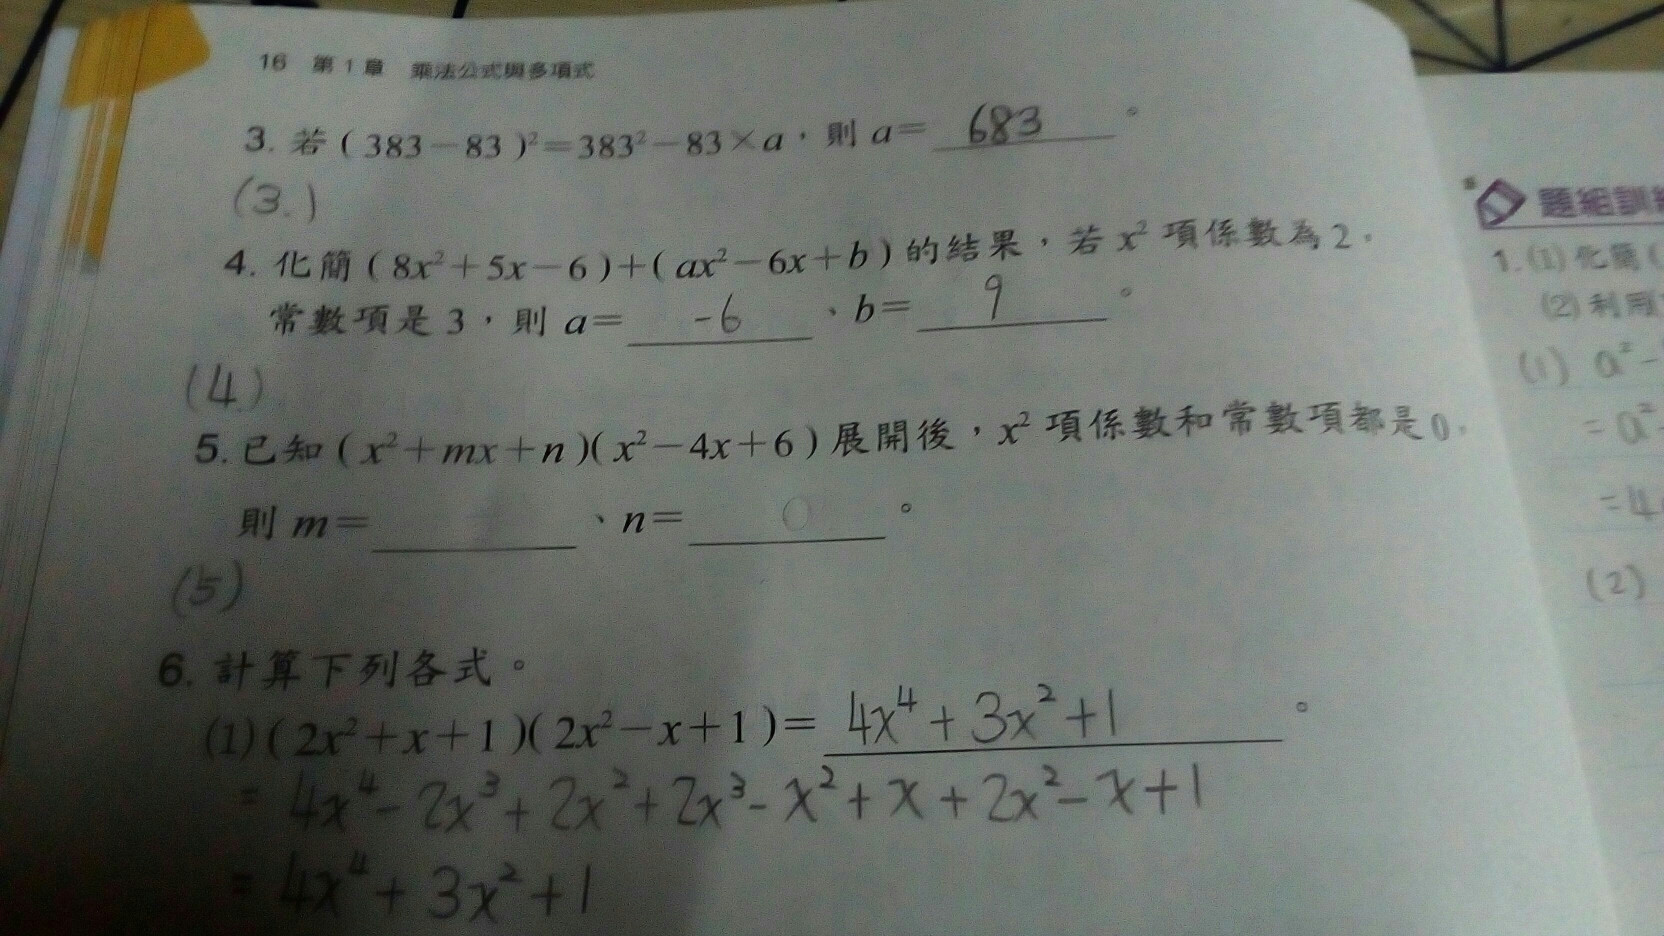 16 第1章 乘法公式與多項式
3. 若(383－83)²＝383²－83×a，則a＝ 683 。
(3.)
4. 化簡(8x²＋5x－6)＋(ax²－6x＋b)的結果，若x²項係數為2，
常數項是3，則a＝ -6 、b＝ 9 。
(4.)
5. 已知(x²＋mx＋n)(x²－4x＋6)展開後，x²項係數和常數項都是0，
則m＝ 、n＝ 0 。
(5)
6. 計算下列各式。
(1)(2x²＋x＋1)(2x²－x＋1)＝ 4x⁴+3x²+1 。
= 4x⁴-2x³+2x²+2x³-x²+x+2x²-x+1
= 4x⁴+3x²+1
題組訓
1.(1)化簡(
(2)利用
(1) a²-
= a²
=4
(2)